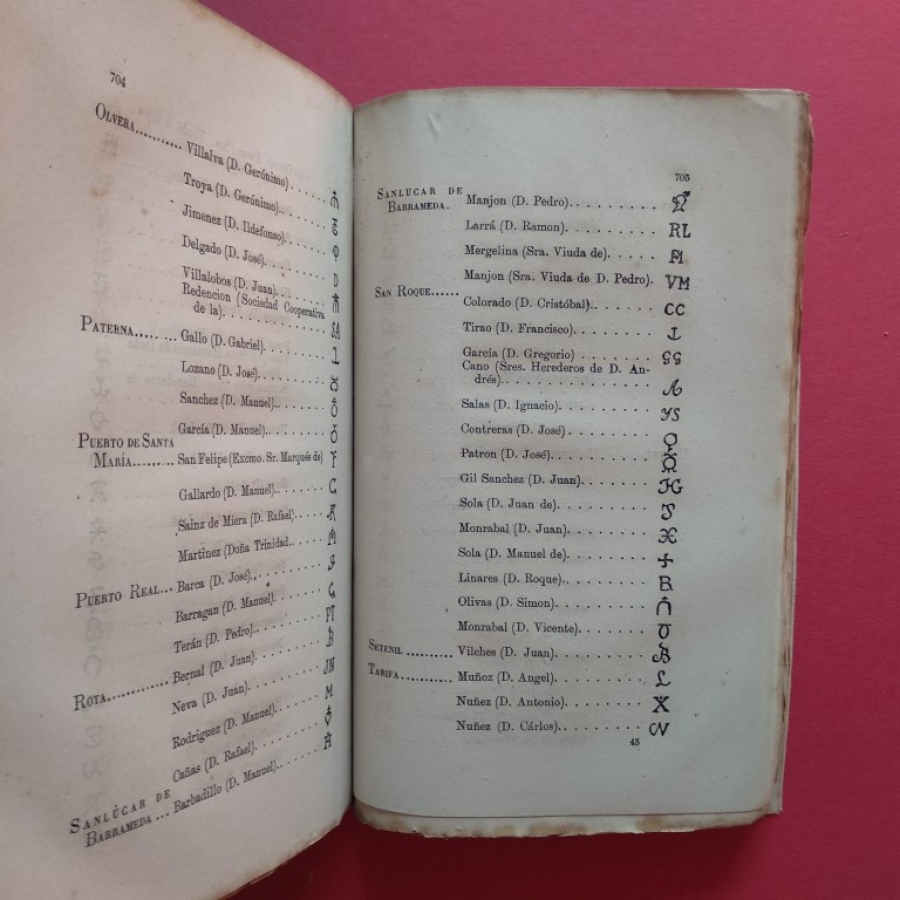 704
OLVERA........... Villalva (D. Gerónimo).
Troya (D. Gerónimo)..
Jimenez (D. Ildefonso).
Delgado (D. José).
Villalobos (D. Juan). D
Redencion (Sociedad Cooperativa
de la). SA
PATERNA......... Gallo (D. Gabriel).
Lozano (D. José).
Sanchez (D. Manuel).
García (D. Manuel).
PUERTO DE SANTA
MARÍA.......... San Felipe (Excmo. Sr. Marqués de)
Gallardo (D. Manuel).
Sainz de Miera (D. Rafael).
Martinez (Doña Trinidad.
PUERTO REAL... Barca (D. José).
Barragan (D. Manuel).
Terán (D. Pedro). PT
Bernal (D. Juan). B
ROTA............ Neva (D. Juan). JN
Rodriguez (D. Manuel). M
Cañas (D. Rafael).
SANLÚCAR DE
BARRAMEDA ... Barbadillo (D. Manuel).
705
SANLUCAR DE
BARRAMEDA. Manjon (D. Pedro).
Larrá (D. Ramon). RL
Mergelina (Sra. Viuda de).
Manjon (Sra. Viuda de D. Pedro). VM
SAN ROQUE...... Colorado (D. Cristóbal). CC
Tirao (D. Francisco).
García (D. Gregorio) GG
Cano (Sres. Herederos de D. An-
drés). A
Salas (D. Ignacio). YS
Contreras (D. José)
Patron (D. José).
Gil Sanchez (D. Juan).
Sola (D. Juan de).
Monrabal (D. Juan).
Sola (D. Manuel de).
Linares (D. Roque).
Olivas (D. Simon).
Monrabal (D. Vicente).
SETENIL .......... Vilches (D. Juan).
TARIFA........... Muñoz (D. Angel).
Nuñez (D. Antonio).
Nuñez (D. Cárlos).
45